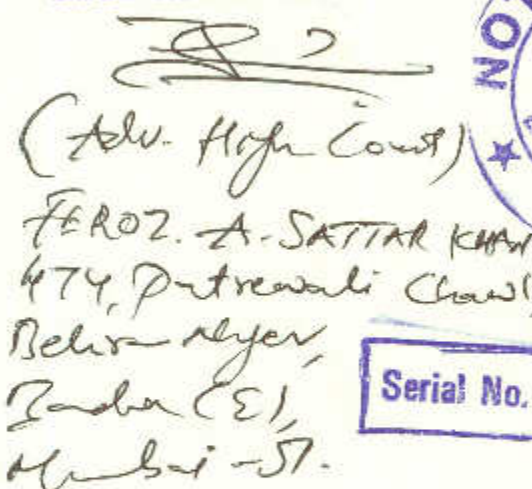 (Adv. High Court)
FEROZ. A. SATTAR KHAN
474, Patrewali Chawl
Behram Nagar,
Bandra (E),
Mumbai - 51.
NO
Serial No.